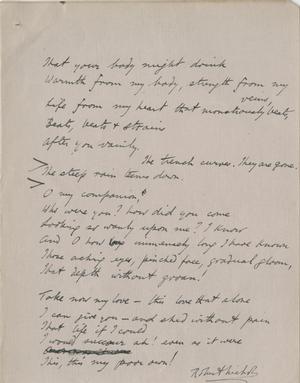 That your body might drink
Warmth from my body, strength from my veins,
Life from my heart that monstrously beats,
Beats, beats & strains
After you vainly.
The trench curves. They are gone.
The steep rain teems down
O my companion,
Who were you? how did you come
Looking so wanly upon me? I know
And O how immensely long I have known
Those aching eyes, pinched face, gradual gloom,
That depth without groan!
Take now my love – this love that alone
I can give you – and shed without pain
That life if I could
I would succour ah! even as it were
This, this my poor own!
Robert Nichols